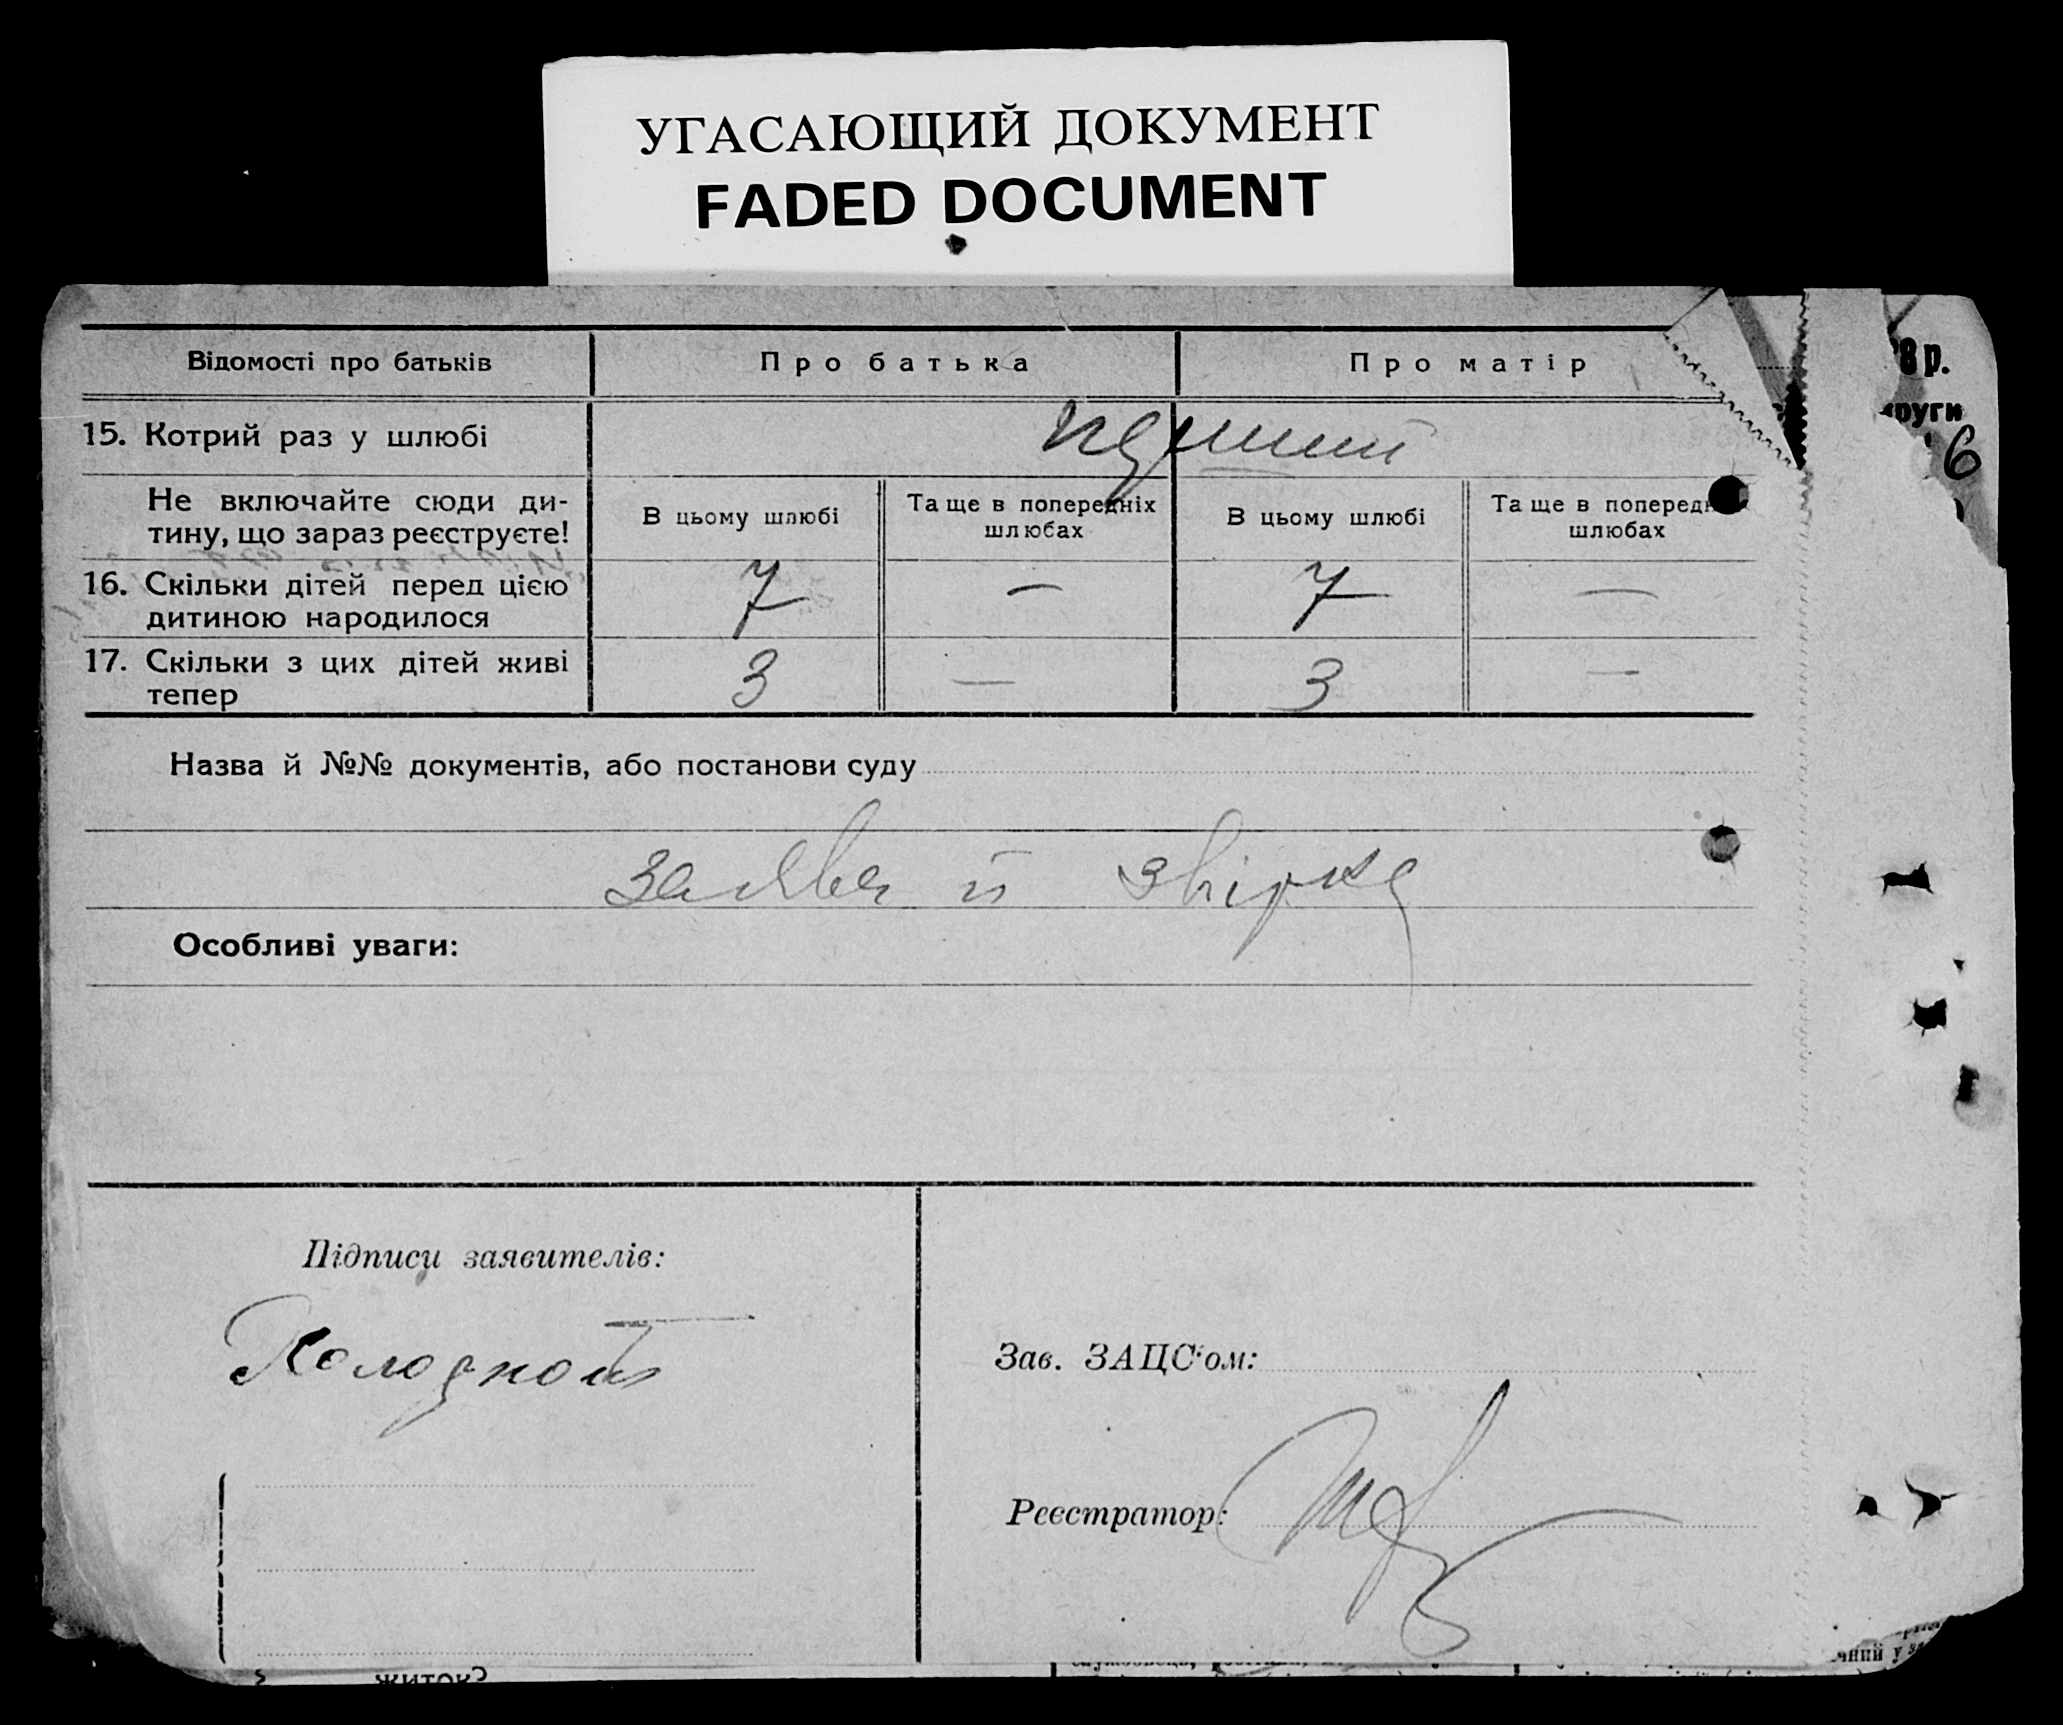 УГАСАЮЩИЙ ДОКУМЕНТ
FADED DOCUMENT
Відомості про батьків
Про батька
Про матір
8 р.
руги
6
15. Котрий раз у шлюбі
перший
Не включайте сюди ди-
тину, що зараз реєструєте!
В цьому шлюбі
Та ще в попередніх
шлюбах
В цьому шлюбі
Та ще в поперед
шлюбах
16. Скільки дітей перед цією
дитиною народилося
7 — 7 —
17. Скільки з цих дітей живі
тепер
3 — 3 —
Назва й №№ документів, або постанови суду
заява й звірка
Особливі уваги:
Підписи заявителів:
Зав. ЗАЦС'ом:
Реєстратор: